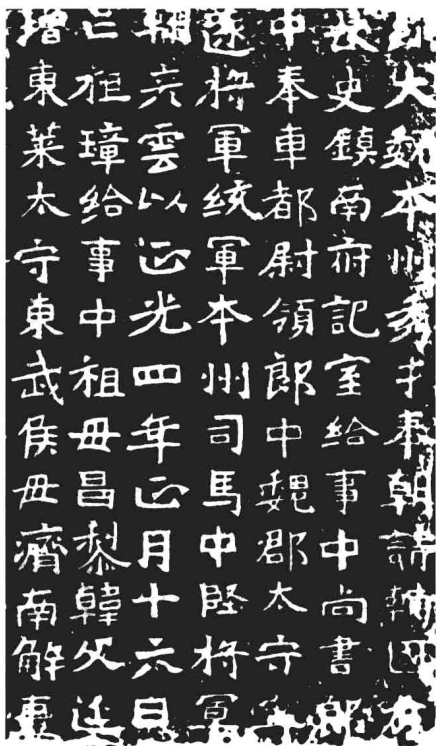 大魏本州秀才奉朝請輔國
長史鎮南府記室給事中尚書郎
中奉車都尉領郎中魏郡太守
遠將軍統軍本州司馬中堅將軍
鞠彥雲以正光四年正月十六日
亡祖璋給事中祖母昌黎韓父延
增東萊太守東武侯母濟南解